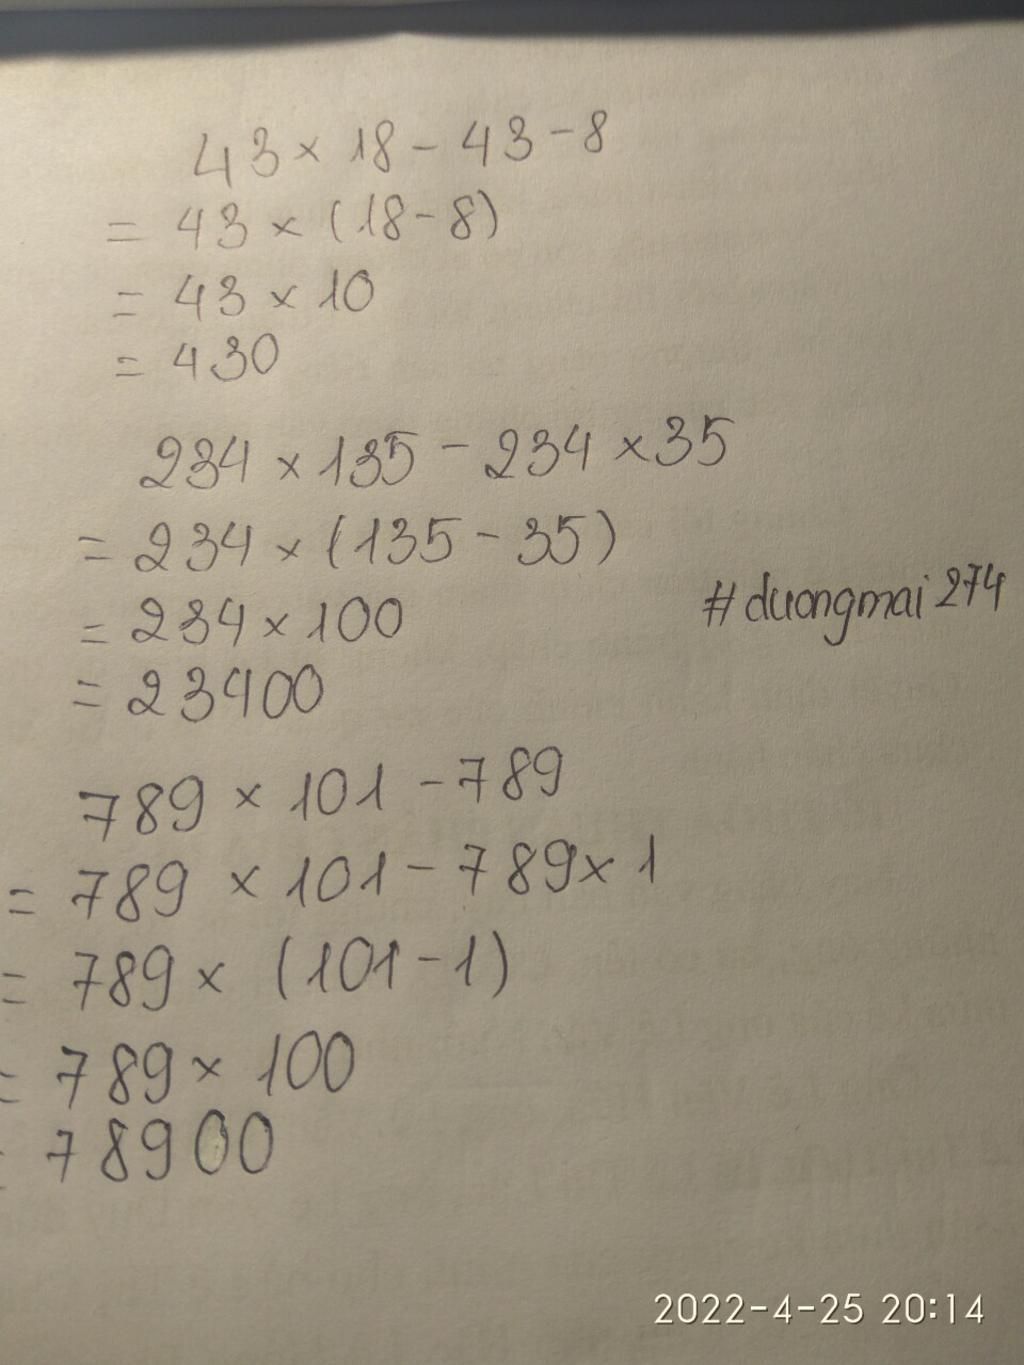 43 × 18 - 43 - 8
= 43 × (18 - 8)
= 43 × 10
= 430
234 × 135 - 234 × 35
= 234 × (135 - 35)
= 234 × 100
= 23400
#duongmai274
789 × 101 - 789
= 789 × 101 - 789 × 1
= 789 × (101 - 1)
= 789 × 100
= 78900
2022-4-25 20:14